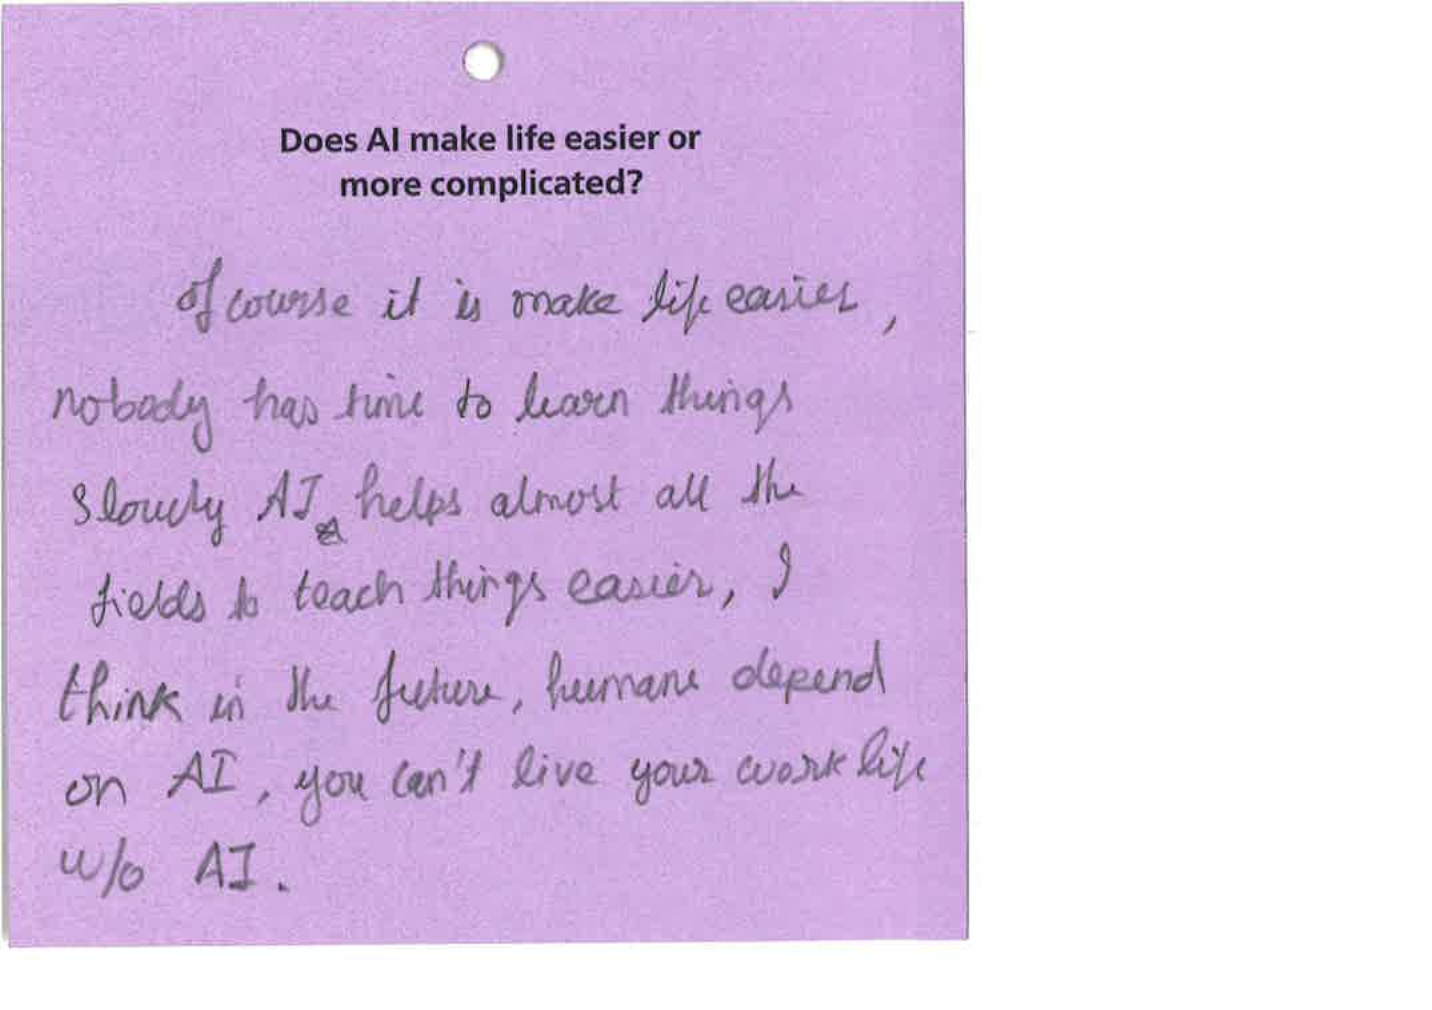 Does AI make life easier or
more complicated?
Of course it is make life easier,
nobody has time to learn things
slowly AI helps almost all the
fields to teach things easier, I
think in the future, humans depend
on AI, you can't live your work life
w/o AI.